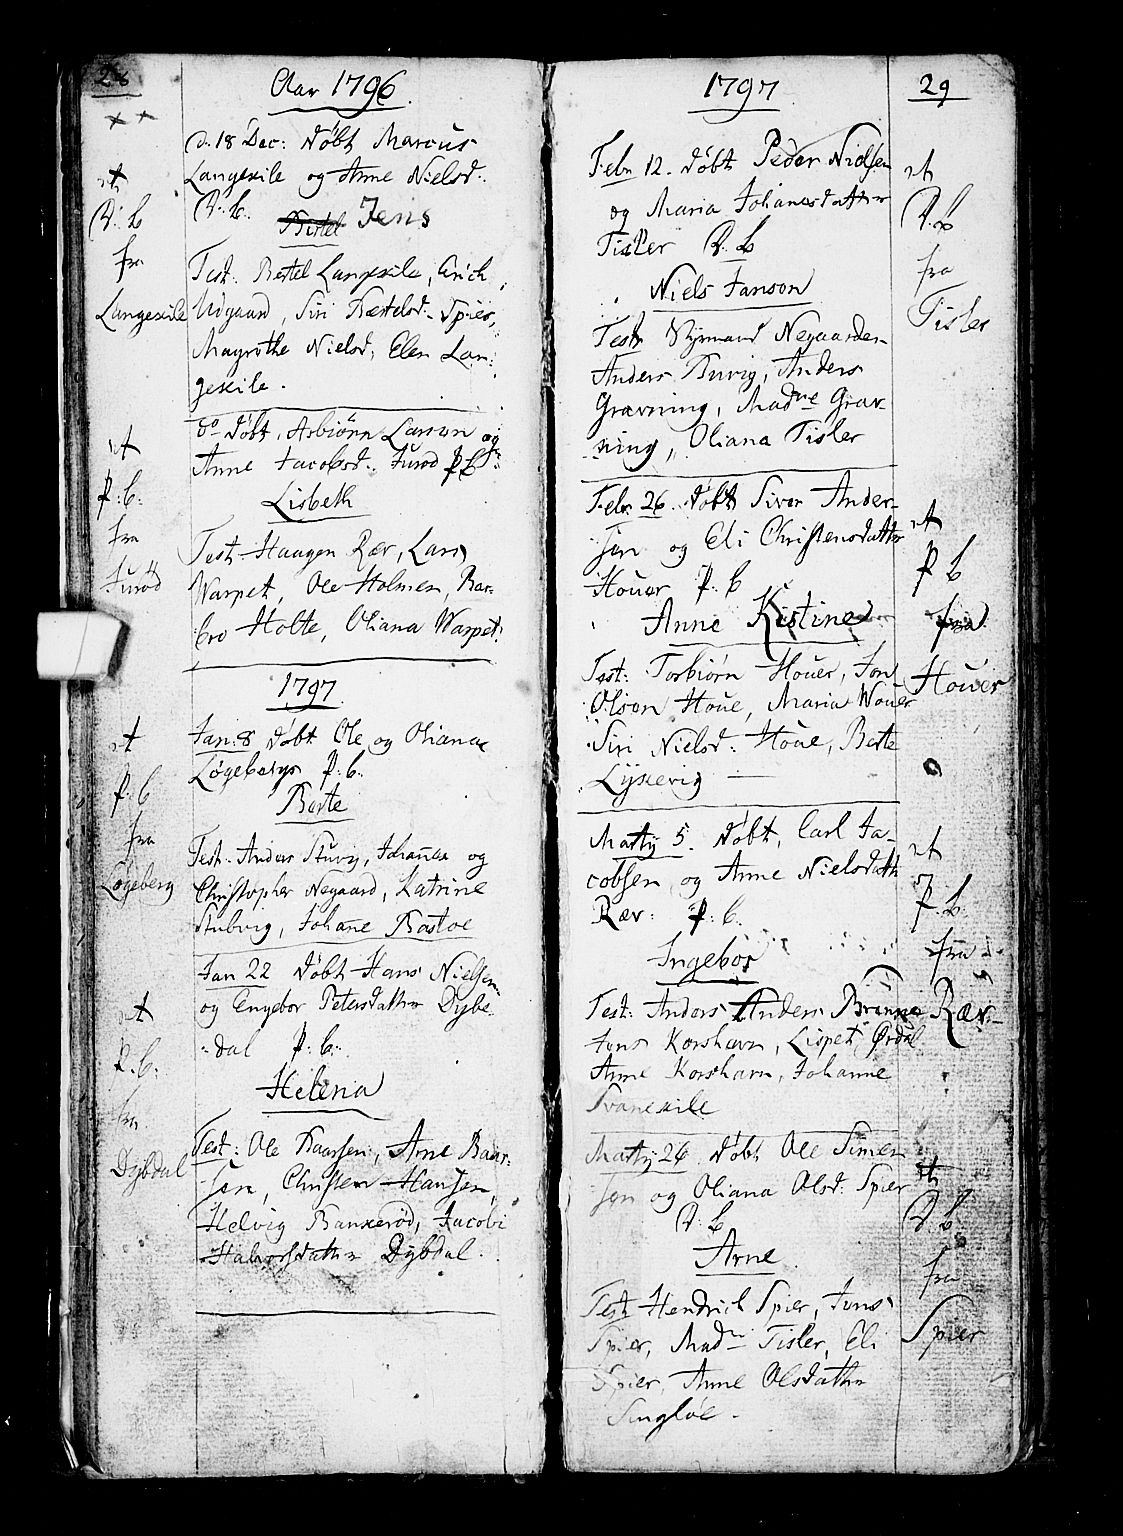 28
Aar 1796
d. 18 Dec: døbt Marcus
Langekile og Anne Nielsd:
D: B. Bertel Jens
Test: Bertel Langekile, Erich
Udgaard, Siri Bertelsd: Spier,
Magrethe Nielsd, Elen Lan:
gekile.
æt
D: B
fra
Langekile
do døbt, Asbiörn Larson og
Anne Jacobsd: Furöd P B
Lisbeth
Test: Haagen Rær, Lars
Warpet, Ole Holmen, Bar-
bro Holte, Oliana Warpet:
æt
P: B:
fra
Furöd
1797
Jan: 8 døbt Ole og Oliana
Løgebergs P: b:
Berte
Test: Anders Stuvig, Johanna og
Christopher Negaard, Katrine
Stubvig, Johanne Bastoe
æt
P: b
fra
Løgeberg
Jan 22 døbt Hans Nielsen
og Engebor Petersdatter Dybe
dal P: b:
Helena
Test: Ole Baarsen, Arne Baar-
sen, Christen Hansen,
Helvig Bankerød, Jacobi
Halvorsdatter Dybdal.
æt
P. b:
fra
Dybdal
1797
29
Febr 12. døbt Peder Nielsen
og Maria Johanesdatter
Tisler D. b
Niels Janson
Test: Styrmand Negaarden
Anders Buvig, Anders
Grævning, Madme Græv-
ning, Oliana Tisler
æt
D. b
fra
Tisler
Febr 26. døbt Siver Ander-
sen og Eli Christensdatter
Houer P. b
Anne Kistine
Test: Torbiörn Houer, Jon
Olson Houe, Maria Wouer
Siri Nielsd: Houe, Berte
Lysevig
æt
P b
fra
Houer
Marty 5. døbt, Carl Ja-
cobsen og Anne Nielsdatt
Rær: P: b.
Ingebor
Test: Anders Anders Brönne
Jens Korshavn, Lispet Ørdal
Anne Korshavn, Johanne
Svanekile
æt
P. b
fra
Rær
Marty 26 døbt Ole Simen-
sen og Oliana Olsd: Spier
D: b
Arne
Test Hendrich Spier, Jens
Spier, Madm Tisler, Eli
Spier, Anne Olsdatter
Singløe.
æt
D. b.
fra
Spier